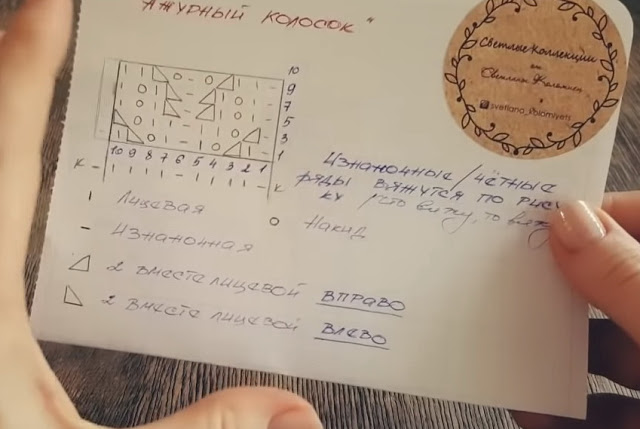 "АЖУРНЫЙ КОЛОСОК"
Светлые Коллекции
от
Светланы Коломиец
svetlana_kolomiyets
10
9
7
5
3
1
10 9 8 7 6 5 4 3 2 1
К – | | | | – | | | | – К
Изнаночные/чётные
ряды вяжутся по рисун
ку /что вижу, то вяжу
| Лицевая
○ Накид
– Изнаночная
2 вместе лицевой вправо
2 вместе лицевой влево